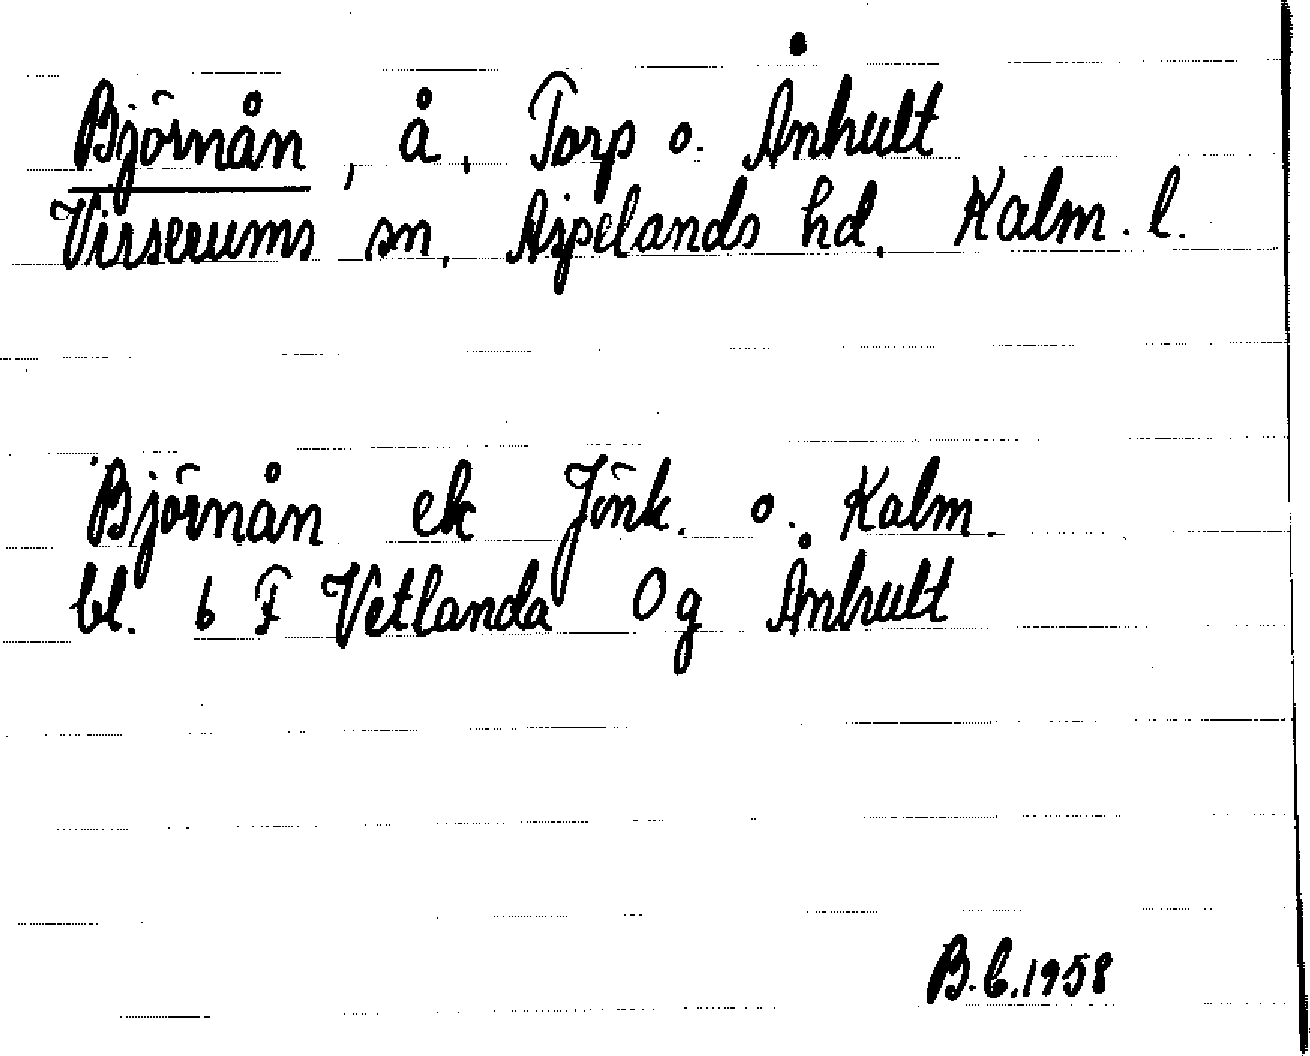 Björnån, å, Torp o. Ånhult
Virserums sn, Aspelands hd. Kalm. l.
Björnån ek Jönk. o. Kalm.
bl. 6 F Vetlanda Og Ånhult
B.C.1958